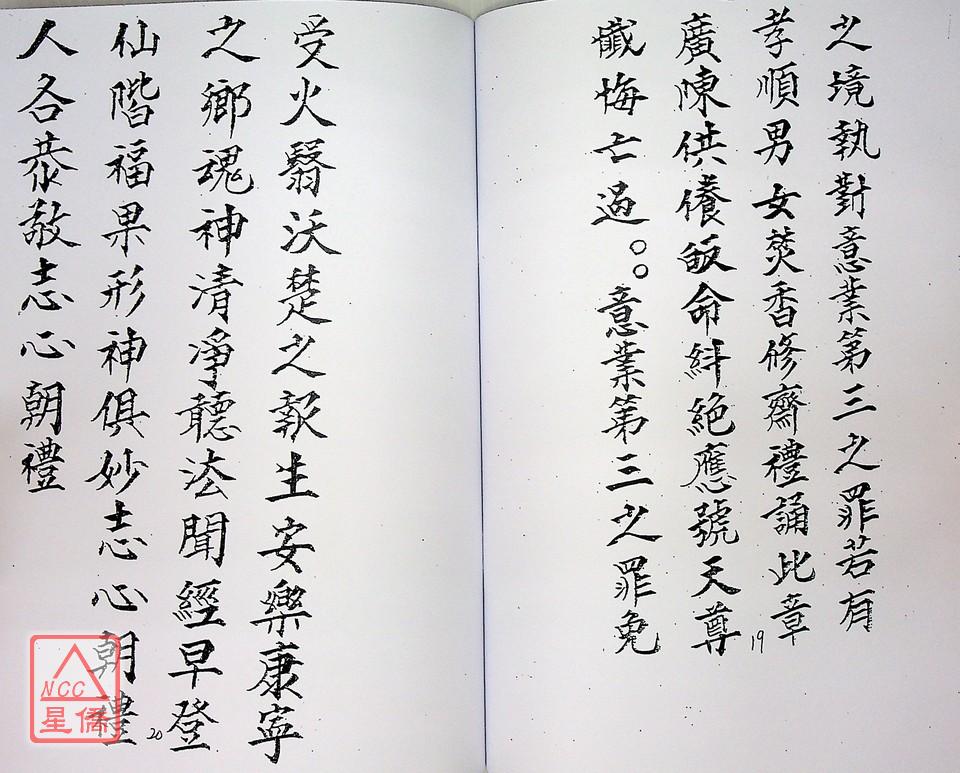 之境執對意業第三之罪若有
孝順男女焚香修齋禮誦此章
廣陳供養皈命絆絕應號天尊
懺悔亡過。。意業第三之罪免
19
受火翳沃楚之報生安樂康寧
之鄉魂神清淨聽法聞經早登
仙階福果形神俱妙志心朝禮
人各恭敬志心朝禮
20
NCC
星僑